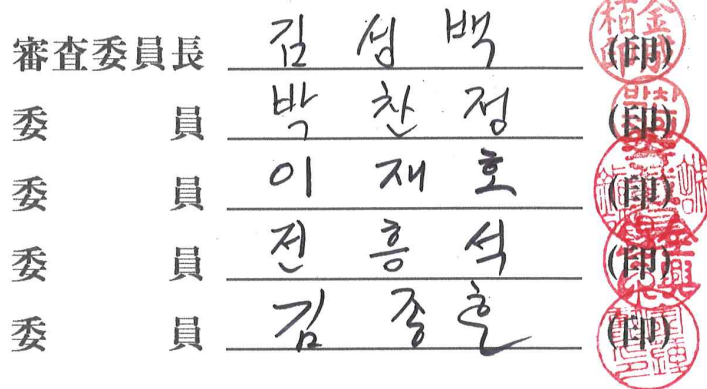 審査委員長 김 성 백 (印)
委 員 박 찬 정 (印)
委 員 이 재 호 (印)
委 員 전 흥 석 (印)
委 員 김 종 훈 (印)